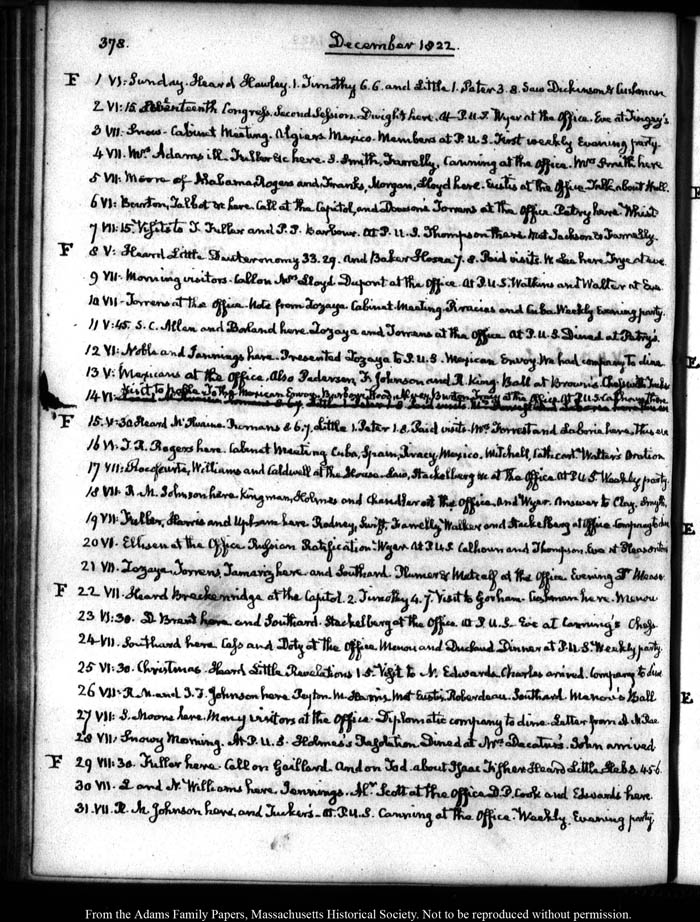 378. December 1822.
F 1 VI: Sunday. Heard Hawley. 1. Timothy 6. 6. and Little 1. Peter 3. 8. Saw Dickinson & Cushman
2 VI: 15. Seventeenth Congress. Second Session. Dwight here. At P.U.S. Wyer at the Office. Eve at Tingey's
3 VII: Snow. Cabinet Meeting. Algiers Mexico. Members at P.U.S. First weekly Evening party.
4 VII. Mrs Adams ill. Fuller &c here. S. Smith, Farrelly, Canning at the Office. Mrs Smith here
5 VII: Moore of Alabama Rogers and Franks, Morgan, Lloyd here. Eustis at the Office Talk about Hull.
6 VI: Burton, Talbot &c here. Call at the Capitol, and Dawson's Torrens at the Office Petry here Whist
7 VII: 15. Visits to T. Fuller and P. P. Barbour. At P.U.S. Thompson there. Met Jackson & Farrelly.
F 8 V: Heard Little Deuteronomy 33. 29. and Baker Hosea 7. 8. Paid visits. W. Lee here. Frye at eve.
9 VII: Morning visitors. Call on Mrs Lloyd Dupont at the Office. At P.U.S. Watkins and Walter at Eve
10 VII: Torrens at the Office. Note from Zozaya. Cabinet Meeting. Piracies and Cuba. Weekly Evening party.
11 V: 45. S. C. Allen and Borland here Zozaya and Torrens at the Office. At P.U.S. Dined at Petry's
12 VI: Noble and Jennings here. Presented Zozaya to P.U.S. Mexican Envoy. We had company to dine
13 V: Mexicans at the Office. Also Pedersen, F. Johnson and R. King. Ball at Brown's
14 VI: Visit to the Mexican Envoy. Barbour, Wyer, Burton, Tracy at the Office. At P.U.S. Calhoun there
F 15. V: 30 Heard McIlvaine. Romans 8. 6. 7. Little 1. Peter 1. 8. Paid visits. Mrs Forrest and Laborie here. This eve
16 VI: T. R. Rogers here. Cabinet Meeting Cuba, Spain, Piracy, Mexico, Mitchell, Cathcart. Walter's Oration
17 VII: Rocafuerte, Williams and Caldwell at the House. Law, Stackelberg &c at the Office. At P.U.S. Weekly party.
18 VII: R. M. Johnson here Kingman, Holmes and Chandler at the Office. And Wyer. Answer to Clay. Smyth,
19 VII: Fuller, Harris and Upham here Rodney, Swift, Farrelly Walker and Stackelberg at Office Company to dine
20 VI: Ellisen at the Office. Russian Ratification. Wyer. At P.U.S. Calhoun and Thompson. Eve at Pleasonton
21 VII: Zozaya, Torrens, Tamariz here and Southard Plumer & Metcalf at the Office. Evening
F 22 VII: Heard Breckenridge at the Capitol. 2. Timothy 4. 7. Visit to Gorham. Cushman here. Menou
23 VI: 30. D. Brent here and Southard. Stackelberg at the Office. At P.U.S. Eve at Canning's Chess
24 VII: Southard here Cass and Doty at the Office Menou and Duchaud. Dinner at P.U.S. Weekly party
25 VI: 30. Christmas. Heard Little Revelations 1. 5. Visit to N. Edwards. Charles arrived. Company to dine
26 VII: R. M. and I. T. Johnson here Peyton M. Harris. Met Eustis Roberdeau. Southard Menou's Ball
27 VII: G. Moore here. Many visitors at the Office. Diplomatic company to dine. Letter from
28 VII: Snowy Morning. At P.U.S. Holmes's Resolution. Dined at Mrs Decatur's. John arrived
F 29 VII: 30. Fuller here. Call on Gaillard. And on Tod about Isaac Fisher Heard Little. Heb 3. 4 5 6.
30 VII: L and N. Williams here, Jennings. Scott at the Office D. P. Cook and Edwards here.
31 VII. R. M. Johnson here, and Tucker's. At P.U.S. Canning at the Office. Weekly. Evening party.
From the Adams Family Papers, Massachusetts Historical Society. Not to be reproduced without permission.